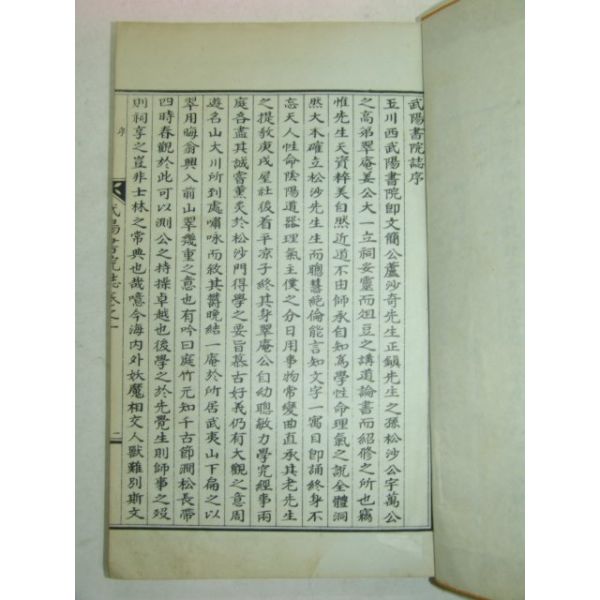 武陽書院誌序
玉川西武陽書院卽文簡公蘆沙奇先生正鎭先生之孫松沙公宇萬公
之高弟翠庵姜公大一立祠妥靈而俎豆之講道論書而紹修之所也竊
惟先生天資粹美自然近道不由師承自知爲學性命理氣之說全體洞
然大本確立松沙先生生而聰慧絶倫能言知文字一寓目卽誦終身不
忘天人性命陰陽道器理氣主僕之分日用事物常變曲直承其老先生
之提敎庚戌屋社後着平凉子終其身翠庵公自幼聰敏力學究經事兩
庭各盡其誠嘗薰炙於松沙門得學之要旨慕古好義仍有大觀之意周
遊名山大川所到處嘯咏而敘其鬱晩結一庵於所居武夷山下扁之以
翠用晦翁興入前山翠幾重之意也有吟曰庭竹元知千古節澗松長帶
四時春觀於此可以測公之持操卓越也後學之於先覺生則師事之歿
則祠享之豈非士林之常典也哉噫今海內外妖魔相交人獸難別斯文
序
武陽書院誌卷之一
二